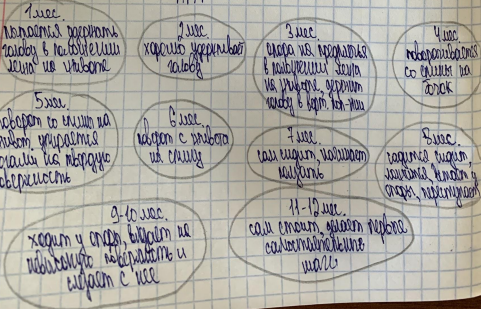 1 мес.
пытается удержать
голову в положении
лежа на животе
2 мес.
хорошо удерживает
голову
3 мес.
опора на предплечья
в положении лежа
на животе, держит
голову в верт. пол-нии
4 мес.
поворачивается
со спины на
бочок
5 мес.
поворот со спины на
живот, упирается
ногами на твердую
поверхность
6 мес.
поворот с живота
на спину
7 мес.
сам сидит, начинает
ползать
8 мес.
садится, сидит,
ложится, встает у
опоры, переступает
9-10 мес.
ходит у опоры, влезает на
невысокую поверхность и
слезает с нее
11-12 мес.
сам стоит, делает первые
самостоятельные
шаги